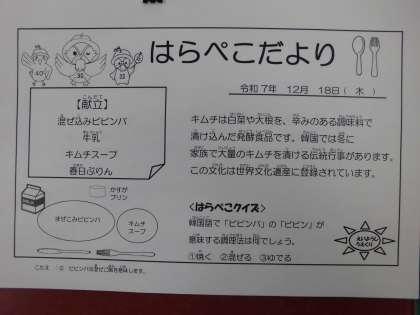 はらぺこだより
令和7年 12月 18日(木)
【献立】
混ぜ込みビビンバ
牛乳
キムチスープ
春日ぷりん
キムチは白菜や大根を、辛みのある調味料で
漬け込んだ発酵食品です。韓国では冬に
家族で大量のキムチを漬ける伝統行事があります。
この文化は世界文化遺産に登録されています。
かすが
プリン
まぜこみビビンバ
キムチ
スープ
<はらぺこクイズ>
韓国語で「ビビンバ」の「ビビン」が
意味する調理法は何でしょう。
①焼く ②混ぜる ③ゆでる
えいようし
こたえ :② ビビンバは混ぜご飯を意味します。